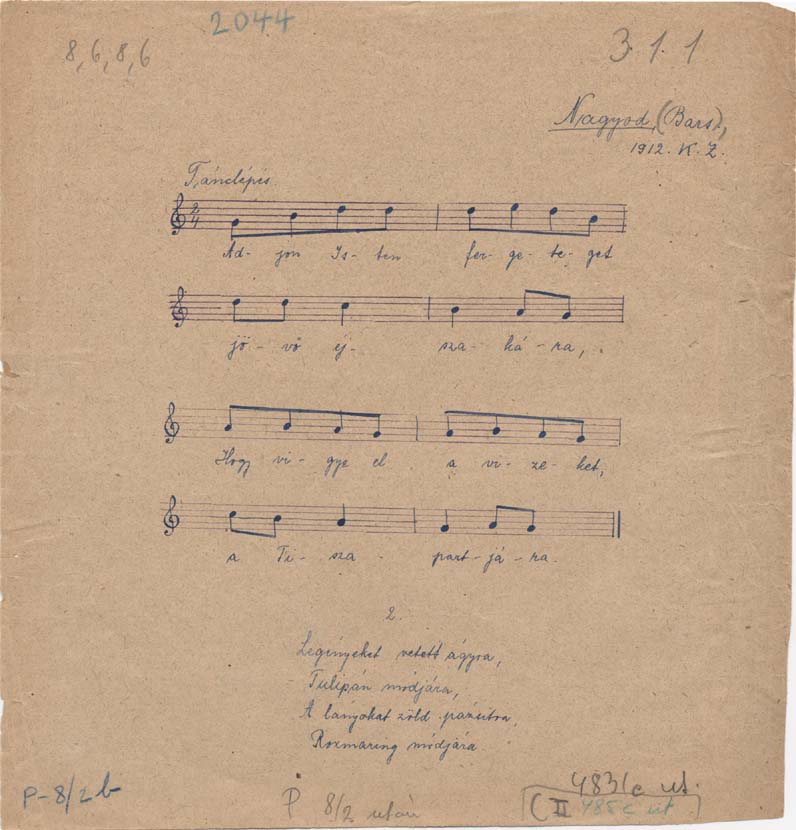 2044
8, 6, 8, 6
3.1.1
Nagyod, (Bars),
1912. K. Z.
Tánclépés.
2/4
Ad- jon Is- ten fer- ge- te- get
jö- vö éj- sza- ká- ra,
Hogy vi- gye el a vi- ze- ket,
a Ti- sza- part- já- ra.
2.
Legényeket vetett ágyra,
Tulipán módjára,
A lányokat zöld pázsitra,
Rozmaring módjára.
P-8/2 b
P 8/2 után
483/c ut.
C II 485 c ut